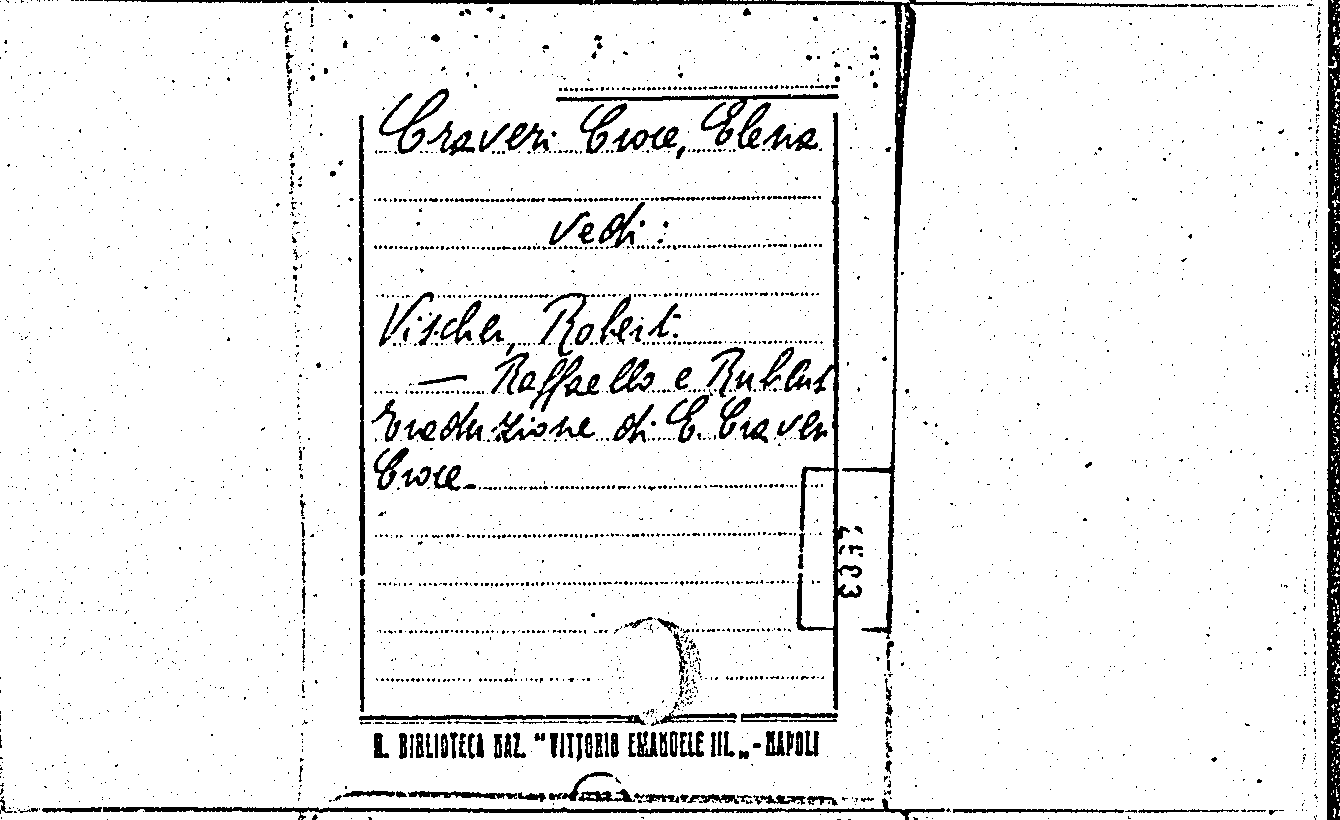 Craveri Croce, Elena
vedi:
Vischer, Robert.
— Raffaello e Rubens
Traduzione di E. Craveri
Croce.
R. BIBLIOTECA NAZ. "VITTORIO EMANUELE III." - NAPOLI